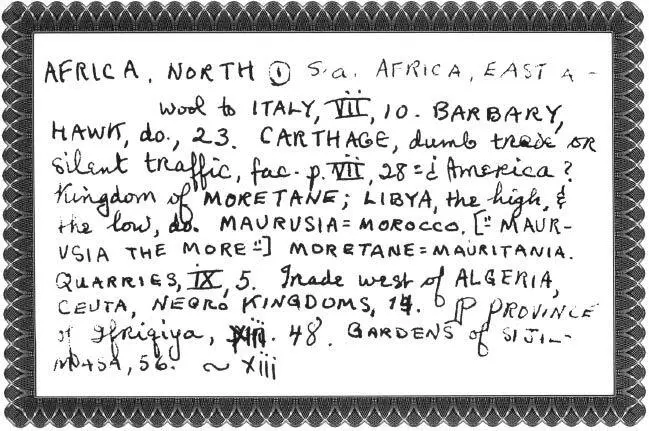 AFRICA, NORTH ① S.a. AFRICA, EAST A-
wool to ITALY, VII, 10. BARBARY,
HAWK, do., 23. CARTHAGE, dumb trade or
silent traffic, fac. p. VII, 28 = ¿ America ?
Kingdom of MORETANE; LIBYA, the high, &
the low, do. MAURUSIA = MOROCCO, [" MAUR-
USIA THE MORE "] MORETANE = MAURITANIA.
QUARRIES, IX, 5. Trade west of ALGERIA,
CEUTA, NEGRO KINGDOMS, 14. P PROVINCE
of Ifriqiya, XIII. 48. GARDENS of SIJIL-
MASA, 56. ~ xiii